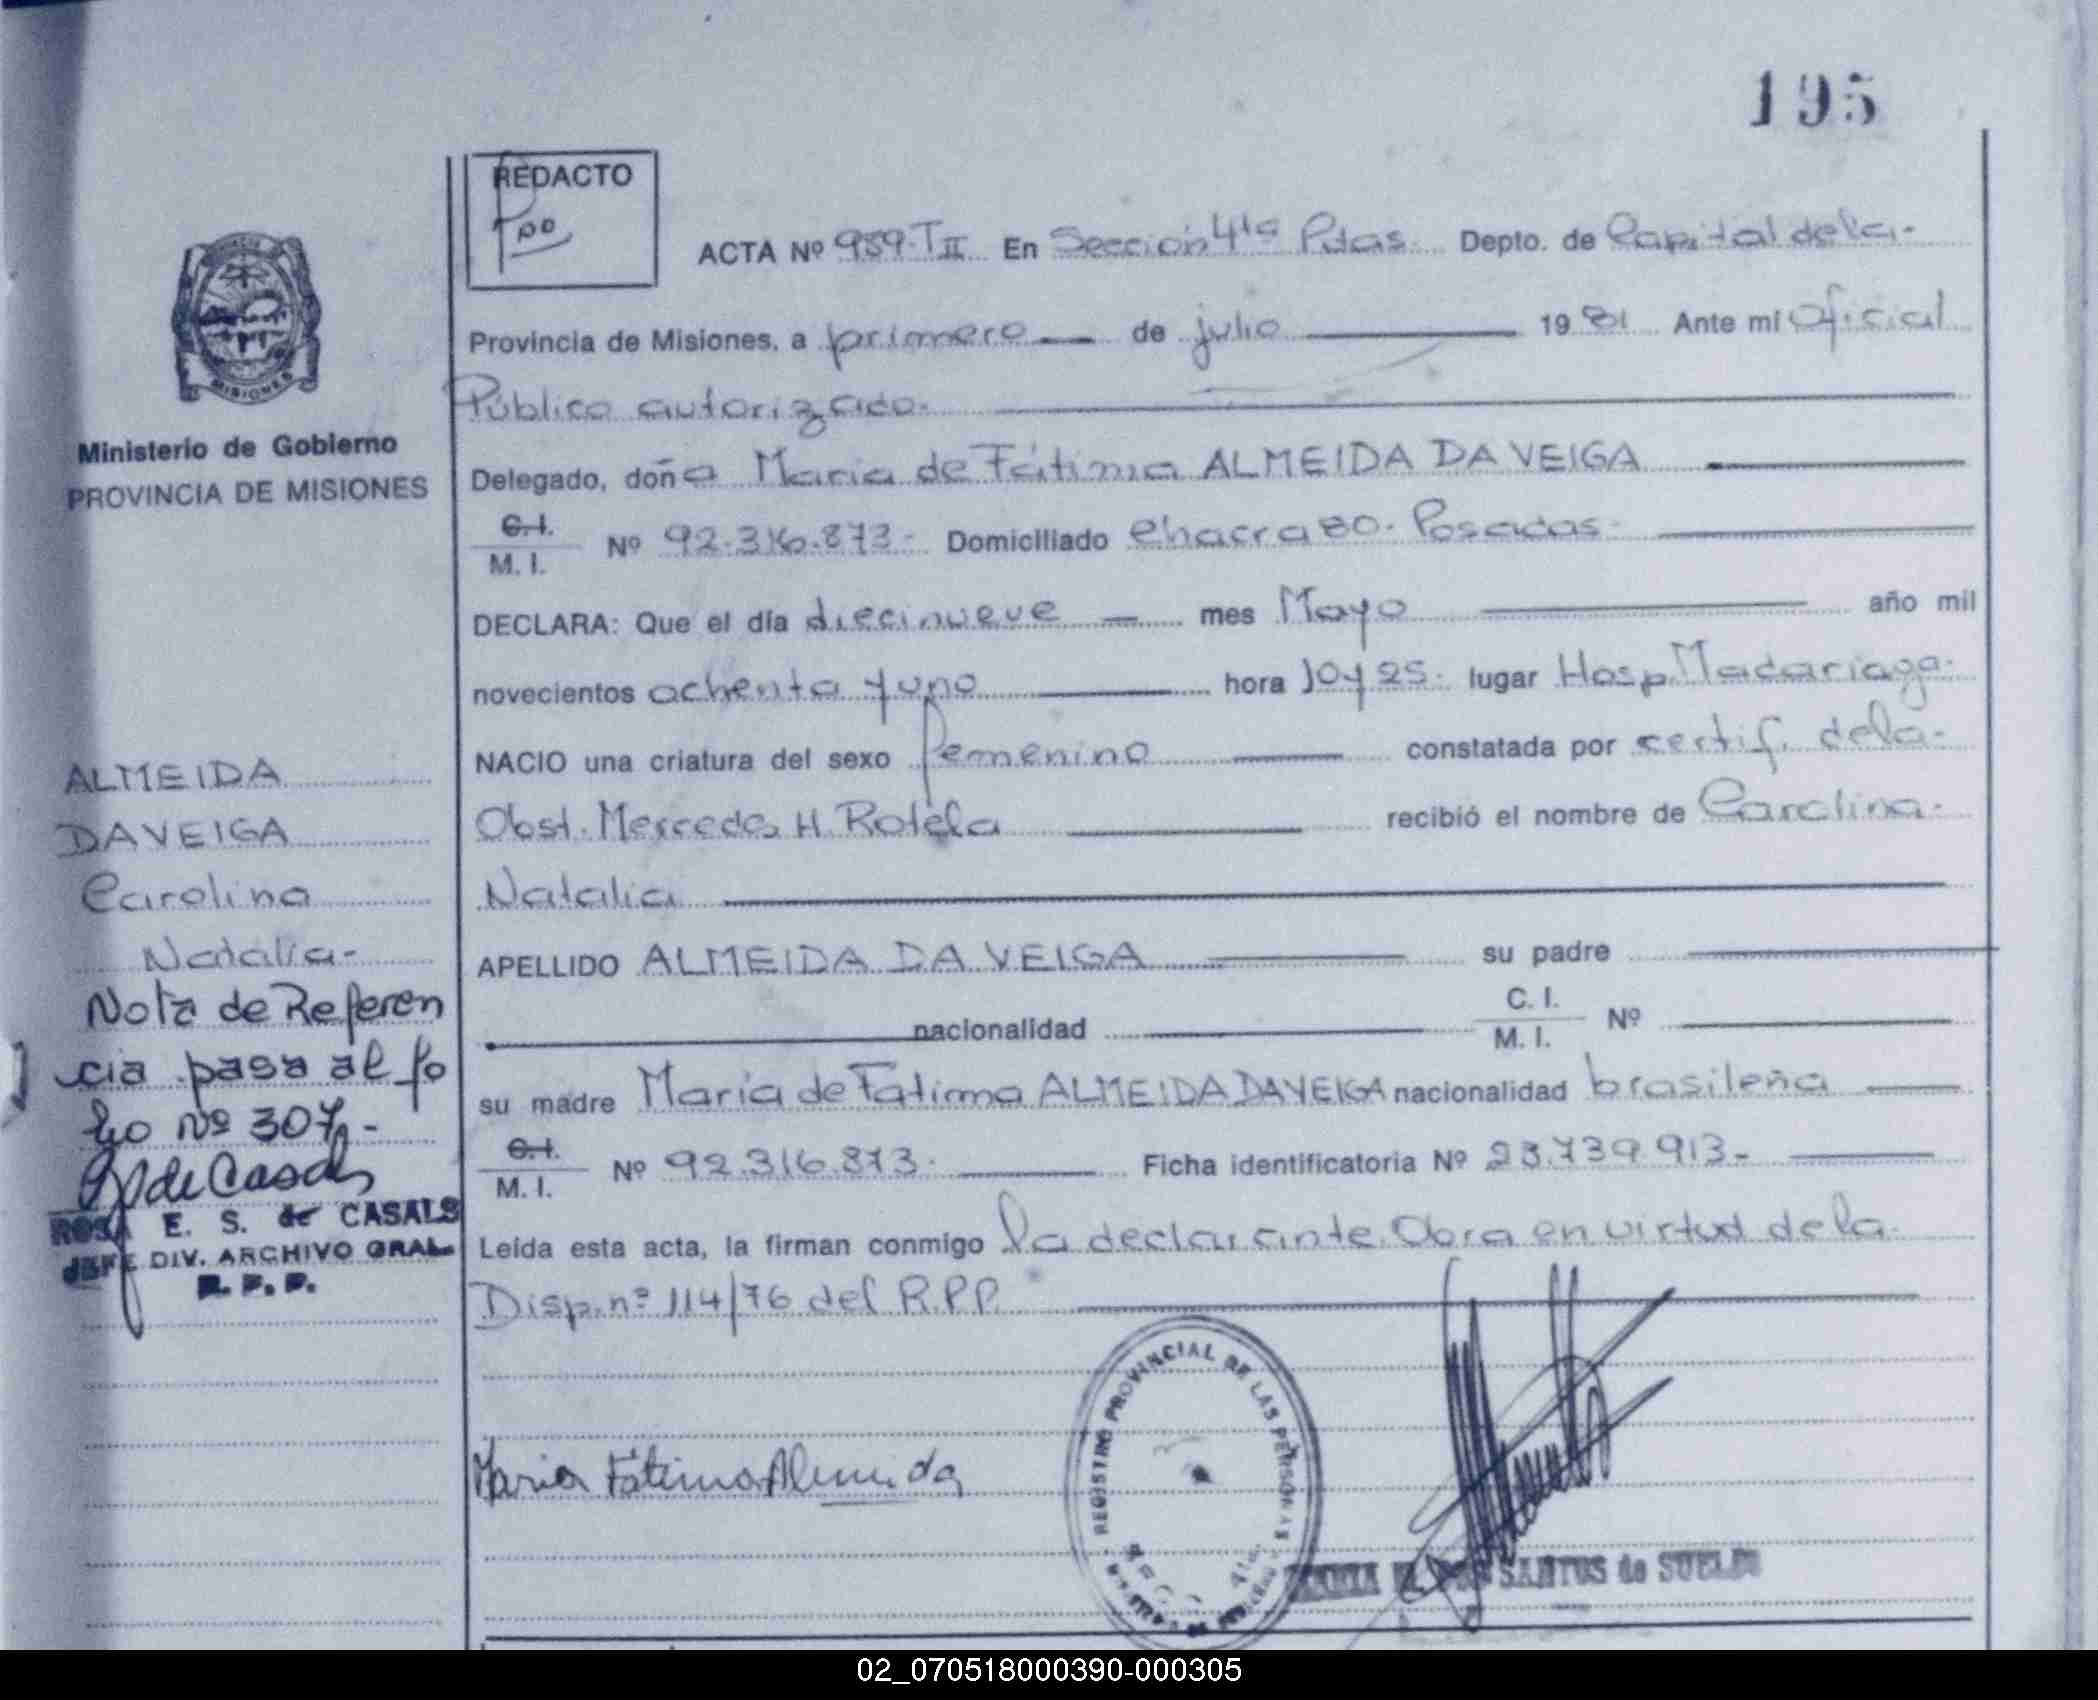 195
REDACTO
Ppo
ACTA Nº 959-TII En Sección 4ta Pdas. Depto. de Capital de la
Provincia de Misiones, a primero de julio 19 81 Ante mí Oficial
Público autorizado.
Delegado, doña María de Fátima ALMEIDA DA VEIGA
C. I.
M. I.
Nº 92.316.873- Domiciliado Chacra 80. Posadas-
DECLARA: Que el día diecinueve mes Mayo año mil
novecientos ochenta y uno hora 10 y 25- lugar Hosp Madariaga-
NACIO una criatura del sexo femenino constatada por certif. de la-
Obst. Mercedes H. Rotela recibió el nombre de Carolina-
Natalia
APELLIDO ALMEIDA DA VEIGA su padre
nacionalidad C. I.
M. I. Nº
su madre María de Fatima ALMEIDA DA VEIGA nacionalidad brasileña
C. I.
M. I.
Nº 92.316.873- Ficha identificatoria Nº 23.739.913-
Leída esta acta, la firman conmigo la declarante. Obra en virtud de la
Disp. nº 114/76 del R.P.P.
Maria Fátima Almeida
REGISTRO PROVINCIAL DE LAS PERSONAS
SANTOS de SUELDO
MISIONES
Ministerio de Gobierno
PROVINCIA DE MISIONES
ALMEIDA
DA VEIGA
Carolina
Natalia-
Nota de Referen
cia pasa al fo
lio Nº 307.-
R de Casals
ROSA E. S. de CASALS
JEFE DIV. ARCHIVO GRAL.
R. P. P.
02_070518000390-000305